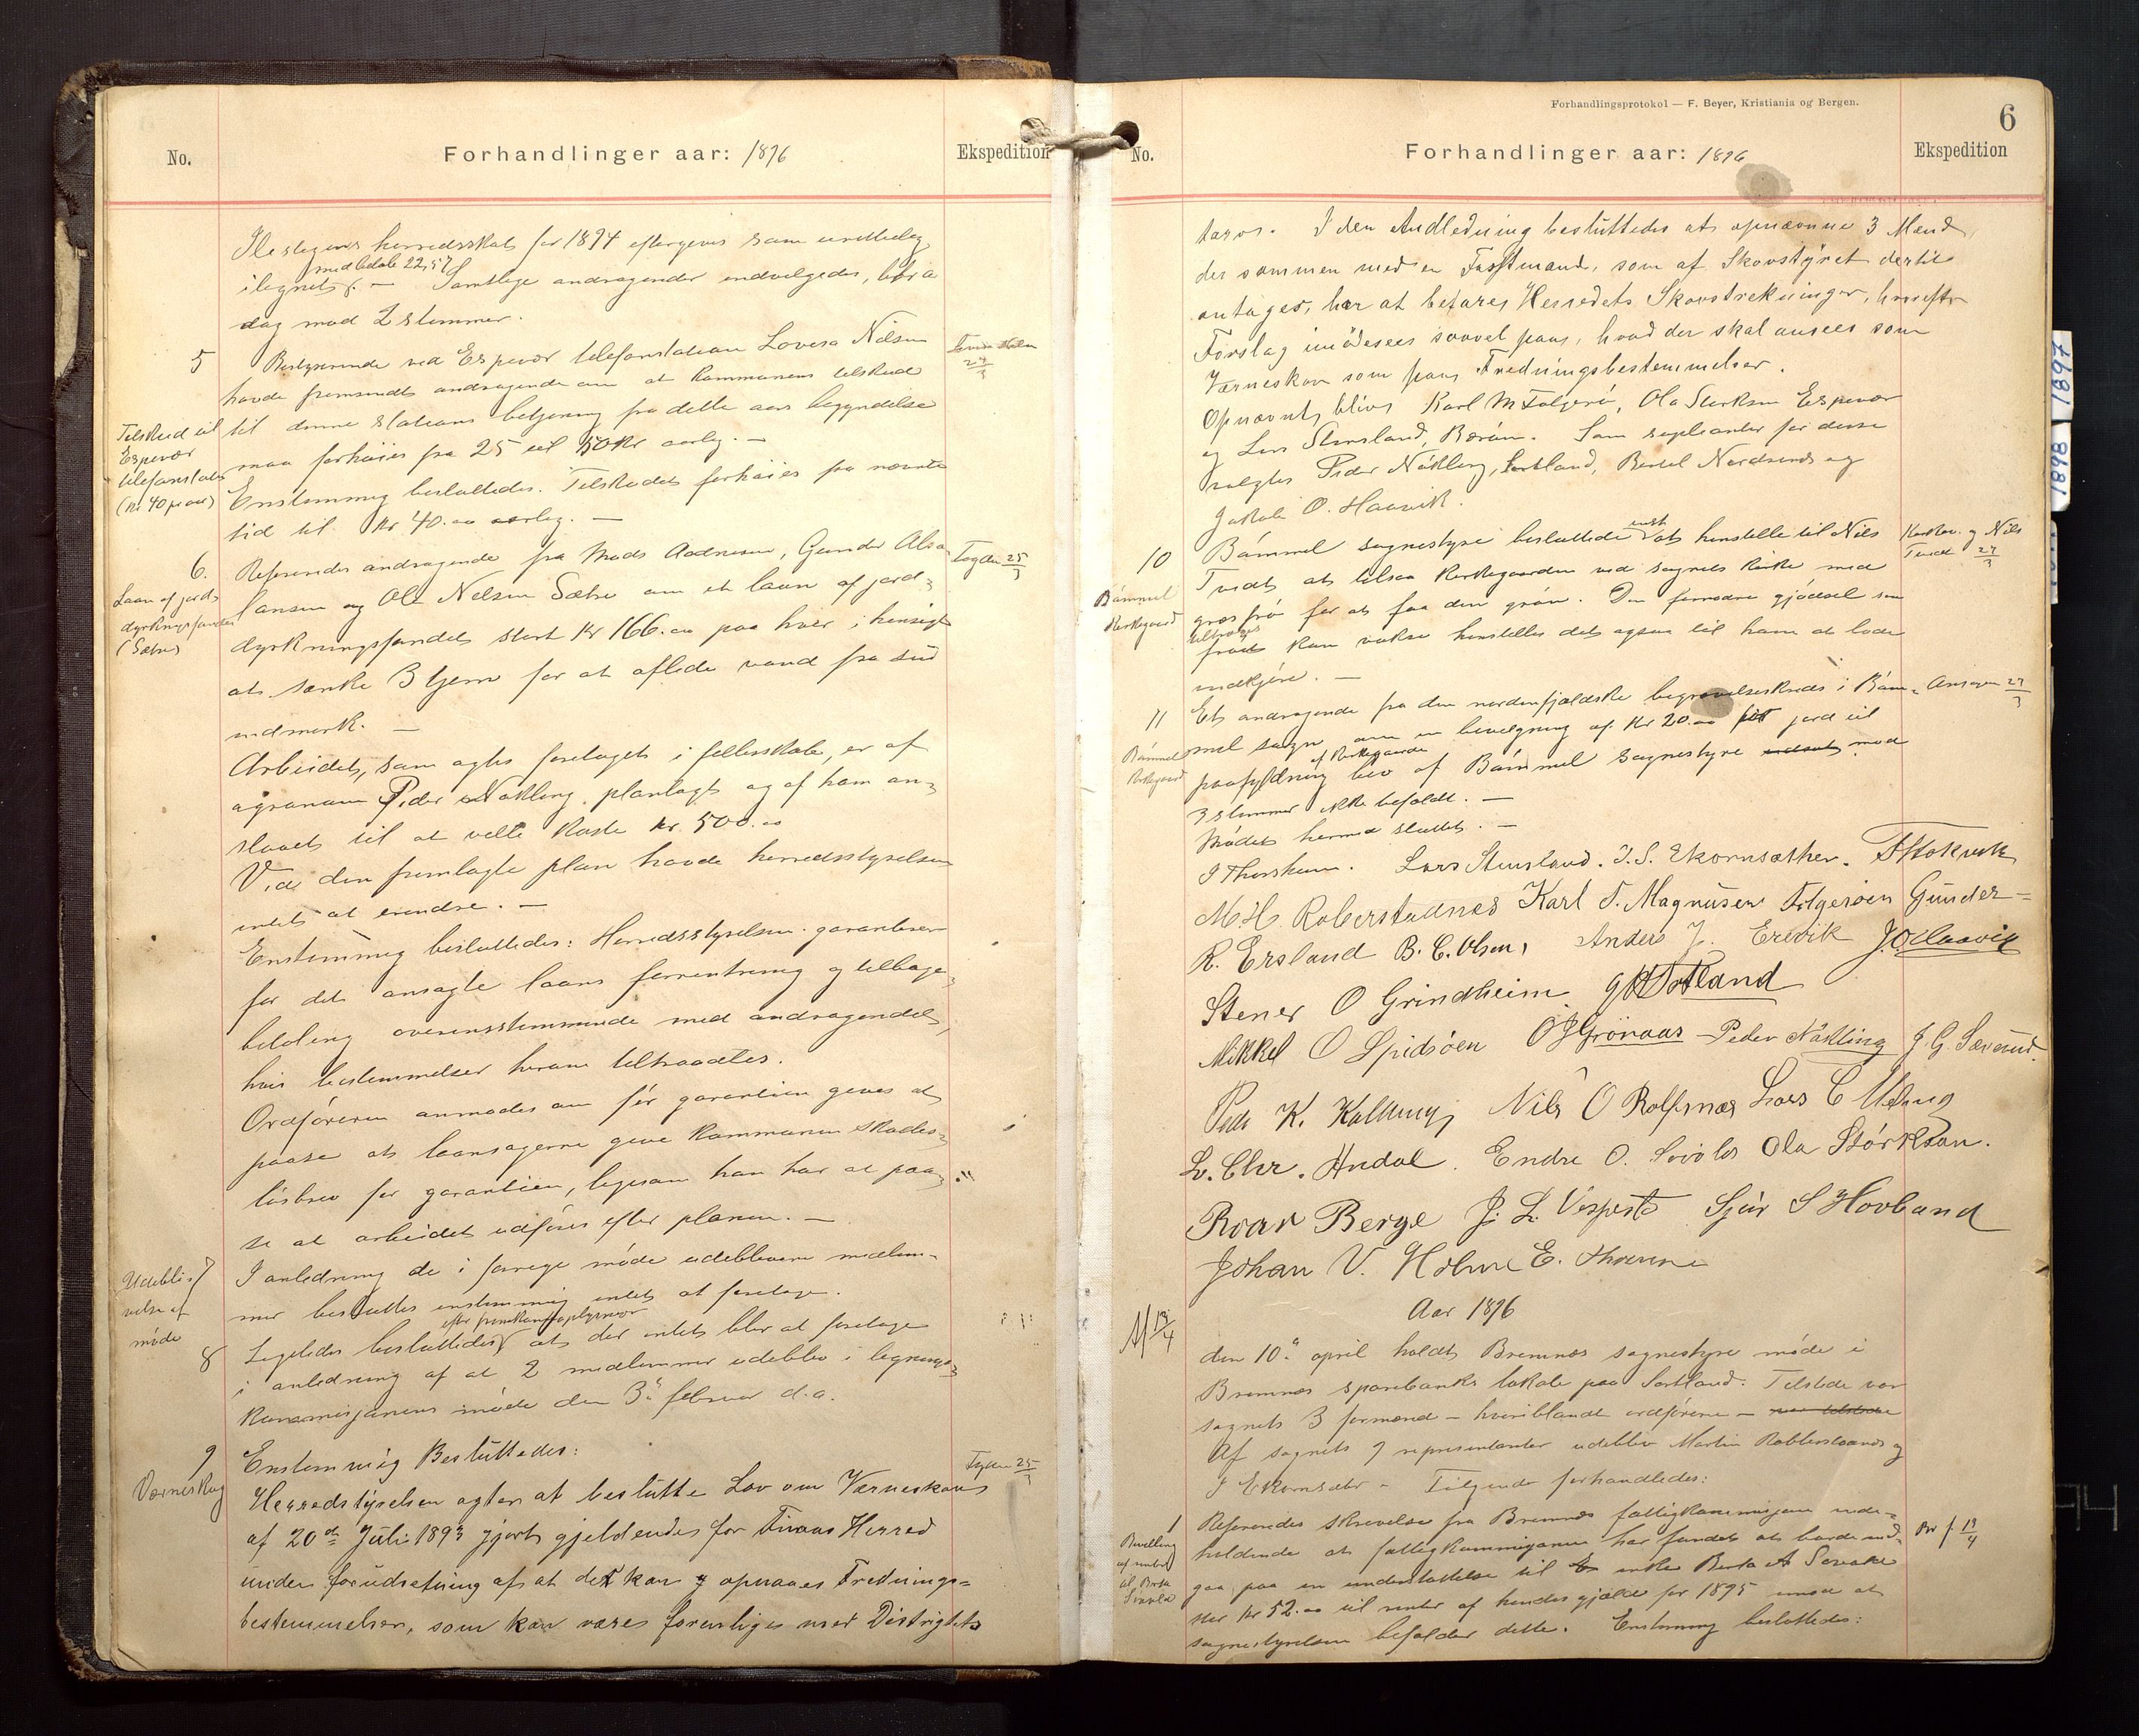 No.
Forhandlinger aar: 1896
Ekspedition
herredsskat for 1894 eftergives som urettelig
med beløb 22,57
ilignet. — Samtlige andragender indvilgedes, litr a
dog mod 2 stemmer.
5
Bestyrerinde ved Espevær telefonstation Lovisa Nilsen
havde fremsendt andragende om at kommunens tilskud
Tilskud til
Espevær
telefonstation
(kr 40 pr aar)
til denne stations betjening fra dette aars begyndelse
maa forhøies fra 25 til 50 kr aarlig. —
Enstemmig besluttedes: Tilskudet forhøies fra nævnte
tid til kr 40.00 aarlig. —
6.
Laan af jord-
dyrkningsfondet
(Sætre)
Refereredes andragende fra Mads Aadnesen, Gunder
Fogden 25/3
lansen og Ole Nelsen Sætre om et laan af jord-
dyrkningsfondet stort kr 166.00 paa hver i hensigt
at sænke 3 tjern for at aflede vand fra sin
indmark. —
Arbeidet, som agtes foretaget i fellesskab, er af
agronom Peder Nøkling planlagt og af ham an-
slaaet til at ville koste kr. 500.00
Ved den fremlagte plan havde herredsstyrelsen
intet at erindre. —
Enstemmig besluttedes: Herredsstyrelsen garanterer
for det ansøgte laans forrentning og tilbage-
betaling overensstemmende med andragendet,
hvis bestemmelser herom tiltraadtes.
Ordføreren anmodes om før garantien gives at
paase at laansøgerne give kommunen skades-
løsbrev for garantien, ligesom han har at paa-
se at arbeidet udføres efter planen. —
7
Udebli-
velse af
møde
I anledning de i forrige møde udeblevne medlem-
mer besluttes enstemmig intet at foretage.
8
Ligeledes besluttedes at der intet blev at foretage
i anledning af at 2 medlemmer udeblev i lignings-
kommisjonens møde den 3. februar d.a.
9
Værneskog
Enstemmig Besluttedes:
Fogden 25/3
Herredstyrelsen agter at beslutte Lov om Værneskove
af 20de Juli 1893 gjort gjeldendes for Finaas Herred
under forudsetning af at det kan opnaaes Frednings-
bestemmelser, som kan være forenlige med Distriktets
Forhandlingsprotokol — F. Beyer, Kristiania og Bergen.
6
No.
Forhandlinger aar: 1896
Ekspedition
tarv. I den Andledning besluttedes at opnævnne 3 Mænd
der sammen med en Forstmand, som af Skovstyret dertil
antages, har at befare Herredets Skovstrekninger, hvorefter
Forslag imødesees saavel paa, hvad der skal ansees som
Værneskov som paa Fredningsbestemmelser.
Opnævnt blive Karl M Folgerø, Ola Størksen Espevær
og Lars Stensland, Bærøn. Som supleanter for disse
valgtes Peder Nøkling, Sortland, Bertel Nordsund og
Jakob O. Haavik.
10
Bømmel
Kirkegaard
Bømmel sognestyre besluttede enst at henstille til Nils
Tvedt at tilsaa kirkegaarden ved sognets kirke med
græsfrø for at faa den grøn. Den fornødne gjødsel som
frøet kan vokse henstilles det ogsaa til ham at lade
indkjøre. —
11
Bømmel
Kirkegaard
Et andragende fra den nordenfjeldske begravelseskreds i Bøm-
Ansøgn 27/3
mel sogn om en bevilgning af kr 20.00 til jord til
af kirkegaarden
paafyldning blev af Bømmel sognestyre mod
3 stemmer ikke bifaldt. —
Mødet hermed sluttet. —
I Thorsheim. Lars Stensland. J. S. Ekornsæther.
M. H. Roberstadnes Karl T. Magnusen Folgerøen Gunder
R. Ersland B. C. Olsen, Anders J. Erevik J. O. Haavik
Stener O Grindheim
Mikkel O Spidsøen O J Grönaas Peder Nökling
Peder K. Nils O Rolfsnæs Lars C
L. Chr. Andal. Endre O. Ola Störkson.
Roar Berge J. L. Sjur S Hovland
Johan V. Holme
Af 13/4
Aar 1896
den 10. april holdt Bremnæs sognestyre møde i
Bremnæs sparebanks lokale paa Sortland. Tilstede var
sognets 3 formænd — hvoriblandt ordføreren —
Af sognets 9 representanter udeblev Martin og
Ekornsæter. Følgende forhandledes:
1
Refereredes skrivelse fra Bremnæs fattigkommission inde-
holdende at fattigkommissionen har fundet at burde ind-
gaa paa en understøttelse til enke Berta A
stor kr 52.00 til renter af hendes gjæld for 1895 imod at
sognestyrelsen bifalder dette. Enstemmig besluttedes:
1897
1898